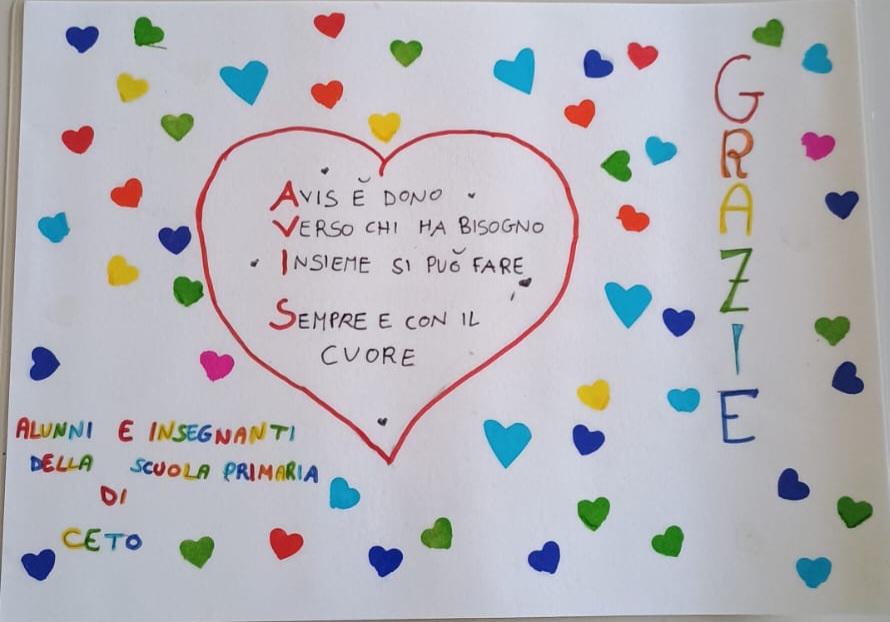 AVIS È DONO
VERSO CHI HA BISOGNO
INSIEME SI PUÒ FARE
SEMPRE E CON IL
CUORE
GRAZIE
ALUNNI E INSEGNANTI
DELLA SCUOLA PRIMARIA
DI
CETO